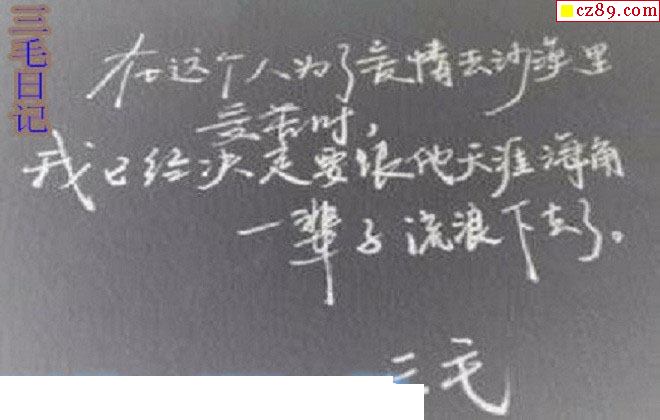 cz89.com
三毛日记
在这个人为了爱情去沙漠里
受苦时,
我已经决定要跟他天涯海角
一辈子流浪下去了。
三毛